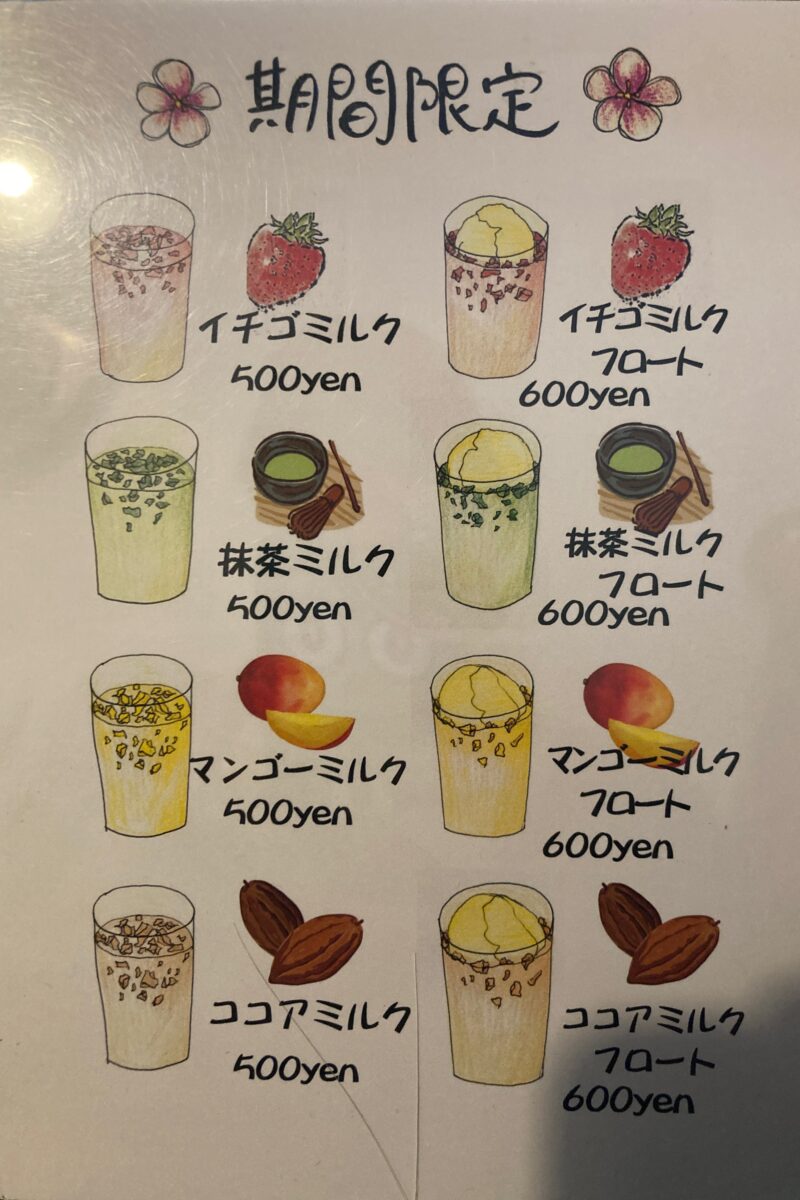 期間限定
イチゴミルク
500yen
イチゴミルク
フロート
600yen
抹茶ミルク
500yen
抹茶ミルク
フロート
600yen
マンゴーミルク
500yen
マンゴーミルク
フロート
600yen
ココアミルク
500yen
ココアミルク
フロート
600yen